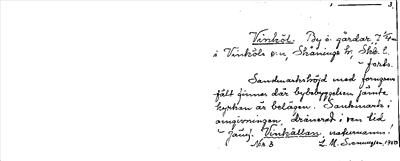 3.
Vinköl. By o. gårdar, 7
i Vinköls sn, Skånings hd, Skb. l.
- forts.
Sandmarkshöjd med forngrav-
fält finnes där bybebyggelsen jämte
kyrkan är belägen. Sankmark i
omgivningen, dränerad i sen tid
- Jämf. Vinkällan, naturnamn!
No. 3 L. M. Svenungsson, 19